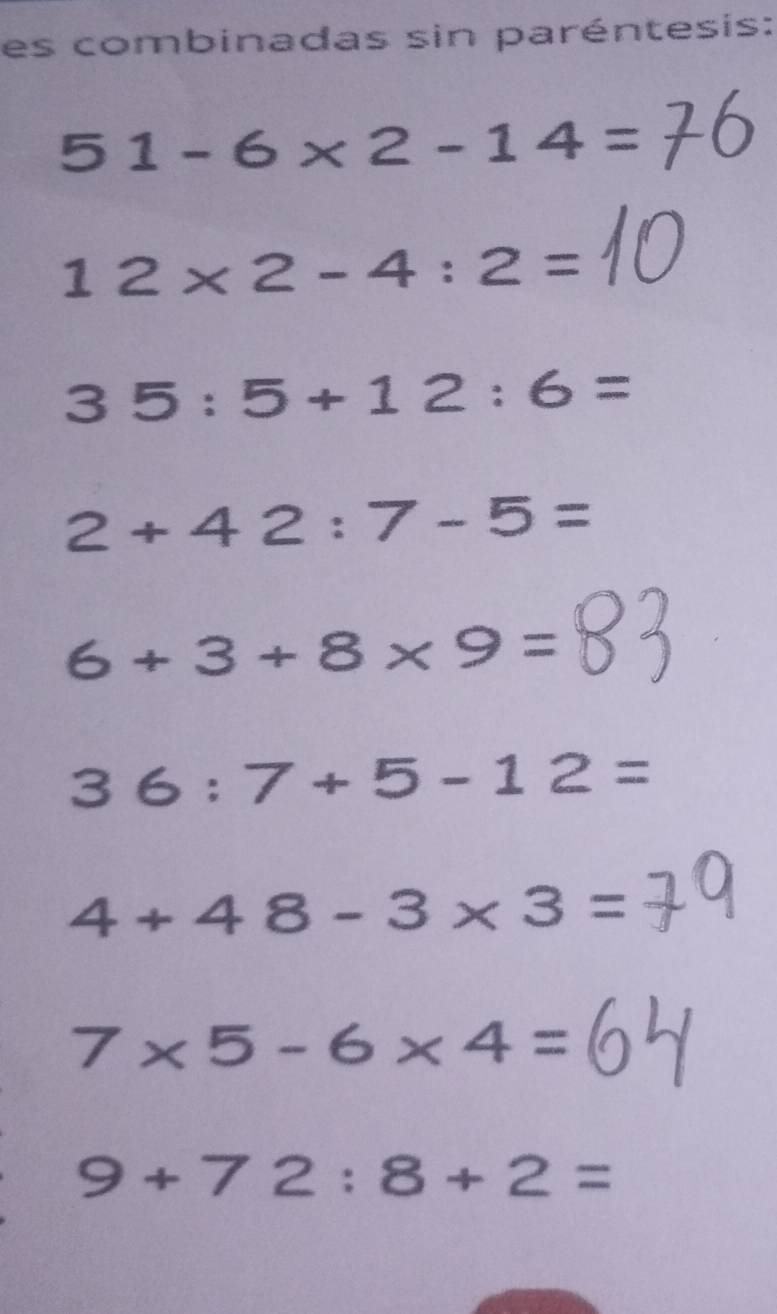 es combinadas sin paréntesis:
51-6×2-14=76
12×2-4:2=10
35:5+12:6=
2+42:7-5=
6+3+8×9=83
36:7+5-12=
4+48-3×3=79
7×5-6×4=64
9+72:8+2=